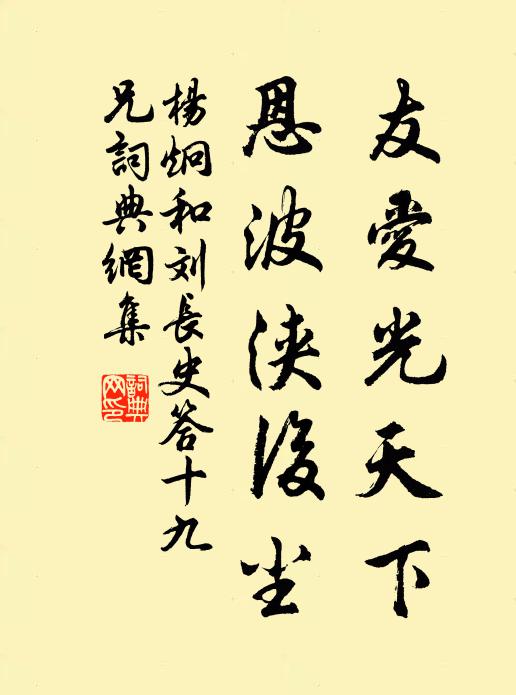 友愛光天下
恩波浹後塵
楊炯和刘長史答十九
兄詞典網集
詞典網印